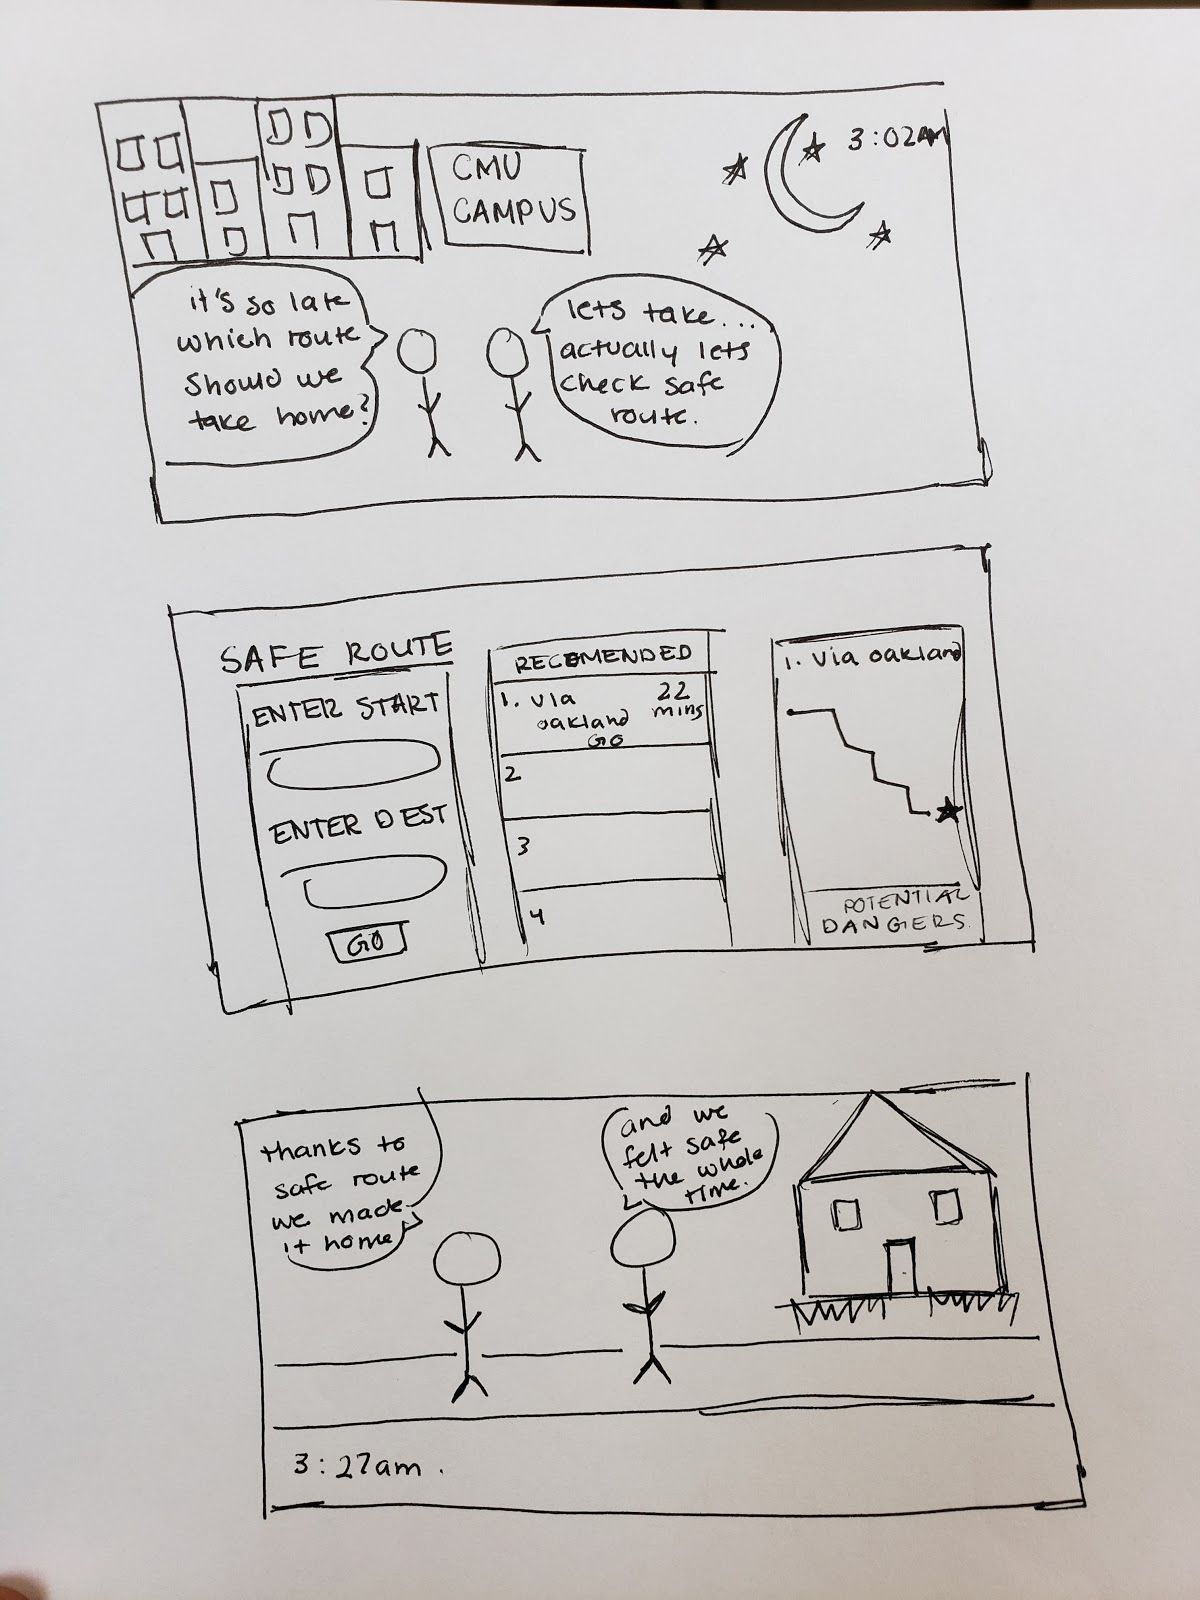 3:02AM
CMU
CAMPUS
it's so late
which route
should we
take home?
lets take...
actually lets
check safe
route.
SAFE ROUTE
ENTER START
ENTER DEST
GO
RECOMENDED
1. via 22
oakland mins
GO
2
3
4
1. via oakland
POTENTIAL
DANGERS.
thanks to
safe route
we made
it home
and we
felt safe
the whole
time.
3:27am.